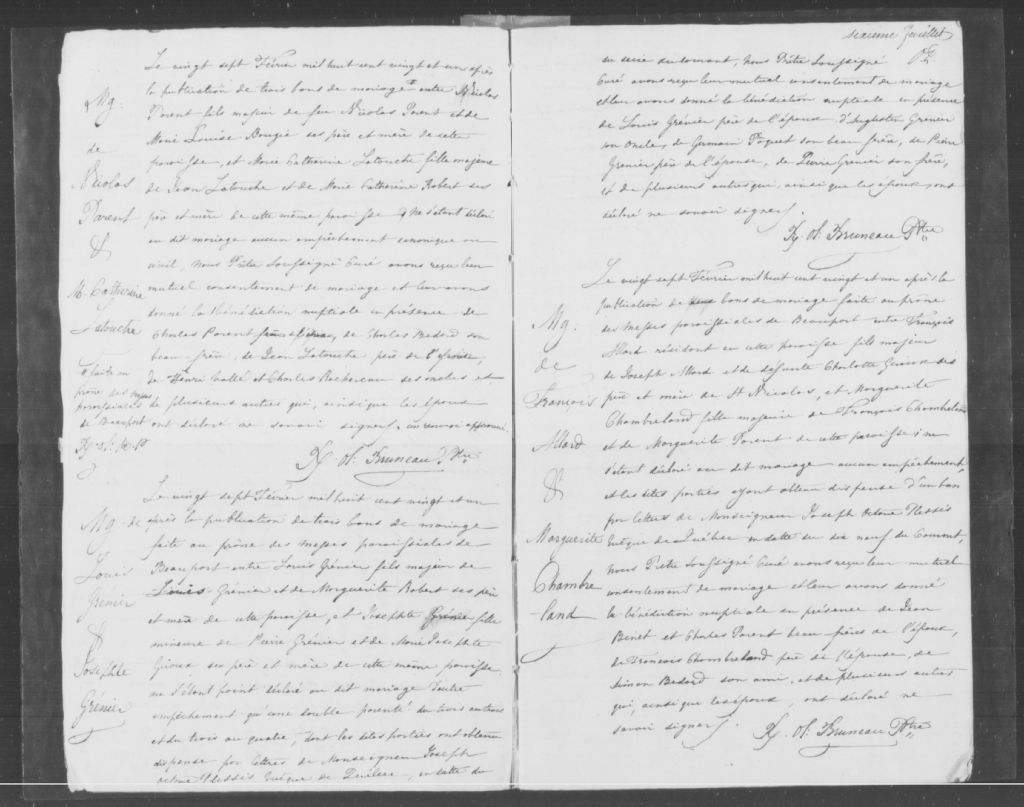 Mg:
de
Nicolas
Parent
&
M. Catherine
Latouche
faite au
prône des messes
paroissiales
de Beauport
Le vingt sept Février mil huit cent vingt et un après
la publication de trois bans de mariage entre Nicolas
Parent fils majeur de feu Nicolas Parent et de
Marie Louise Bougie ses père et mère de cette
paroisse, et Marie Catherine Latouche fille majeure
de Jean Latouche et de Marie Catherine Robert ses
père et mère de cette même paroisse ne s'étant déclaré
au dit mariage aucun empêchement canonique ou
civil, Nous Prêtre Soussigné Curé avons reçu leur
mutuel consentement de mariage et leur avons
donné la bénédiction nuptiale en présence de
Charles Parent de Charles Bedard son
beau frère, de Jean Latouche père de l'épouse,
de Henri Vallé et Charles Rochereau ses oncles et
de plusieurs autres qui, ainsi que les époux
ont déclaré ne savoir signer. un renvoi approuvé.
Bruneau Ptre
Mg: de
Louis
Grenier
&
Josephte
Grénier
Le vingt sept Février mil huit cent vingt et un
après la publication de trois bans de mariage
faite au prône des messes paroissiales de
Beauport entre Louis Grénier fils majeur de
Louis Grénier et de Marguerite Robert ses père
et mère de cette paroisse, et Josephte Grénier fille
mineure de Pierre Grénier et de Marie Josephte
Giroux ses père et mère de cette même paroisse.
ne s'étant point déclaré au dit mariage d'autre
empêchement qu'une double parenté du trois au trois
et du trois au quatre, dont les dites parties ont obtenu
dispense par lettres de Monseigneur Joseph
Octave Plessis Evêque de Québec, en datte du
sixieme feuillet
du seize du courant, Nous Prêtre Soussigné
Curé avons reçu leur mutuel consentement de mariage
et leur avons donné la bénédiction nuptiale en présence
de Louis Grénier père de l'époux, d'Augustin Grenier
son oncle, de Germain Paquet son beau frère, de Pierre
Grenier père de l'épouse, de Pierre Grenier son frère,
et de plusieurs autres qui, ainsi que les époux ont
déclaré ne savoir signer.
Bruneau Ptre
Mg:
de
François
Allard
&
Marguerite
Chambre
-land
Le vingt sept Février mil huit cent vingt et un après la
publication de deux bans de mariage faite au prône
des Messes paroissiales de Beauport entre François
Allard résident en cette paroisse fils majeur
de Joseph Allard et de défunte Charlotte Giroux ses
père et mère de St Nicolas, et Marguerite
Chambreland fille majeure de François Chambreland
et de Marguerite Parent de cette paroisse; ne
s'étant déclaré au dit mariage aucun empêchement,
et les dites parties ayant obtenu dispense d'un ban
par lettres de Monseigneur Joseph Octave Plessis
Evêque de Québec en datte du dix neuf du Courant,
Nous Prêtre Soussigné Curé avons reçu leur mutuel
consentement de mariage et leur avons donné
la bénédiction nuptiale en présence de Jean
Benet et Charles Parent beau frères de l'époux,
de François Chambreland père de l'épouse, de
Simon Bedard son ami, et de plusieurs autres
qui, ainsi que les époux, ont déclaré ne
savoir signer.
Bruneau Ptre